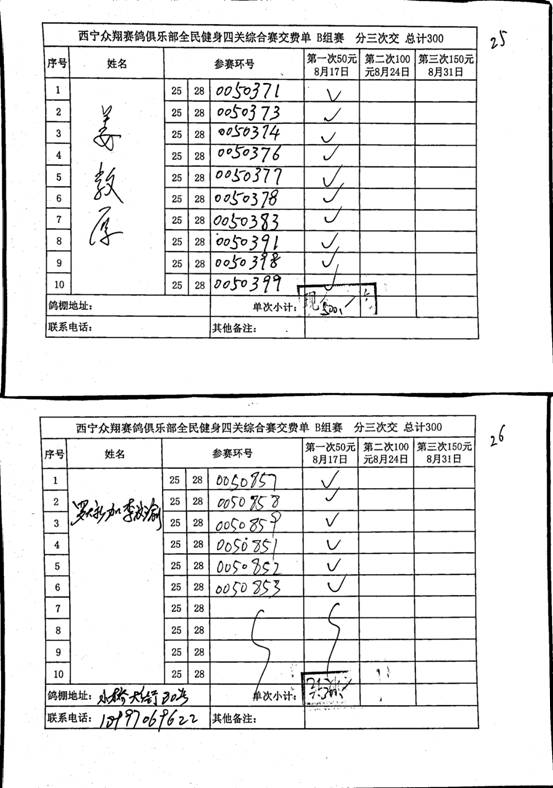 25
西宁众翔赛鸽俱乐部全民健身四关综合赛交费单 B组赛 分三次交 总计300
序号 姓名 参赛环号 第一次50元 8月17日 第二次100元8月24日 第三次150元 8月31日
1 25 28 0050371 ✓
2 25 28 0050373 ✓
3 25 28 0050374 ✓
4 25 28 0050376 ✓
5 25 28 0050377 ✓
6 25 28 0050378 ✓
7 25 28 0050383 ✓
8 25 28 0050391 ✓
9 25 28 0050398 ✓
10 25 28 0050399 ✓
姜教厚
鸽棚地址: 单次小计: 现500
联系电话: 其他备注:
26
西宁众翔赛鸽俱乐部全民健身四关综合赛交费单 B组赛 分三次交 总计300
序号 姓名 参赛环号 第一次50元 8月17日 第二次100元8月24日 第三次150元 8月31日
1 25 28 0050857 ✓
2 25 28 0050858 ✓
3 25 28 0050859 ✓
4 25 28 0050851 ✓
5 25 28 0050852 ✓
6 25 28 0050853 ✓
7 25 28
8 25 28
9 25 28
10 25 28
鸽棚地址: 单次小计:
联系电话: 其他备注: